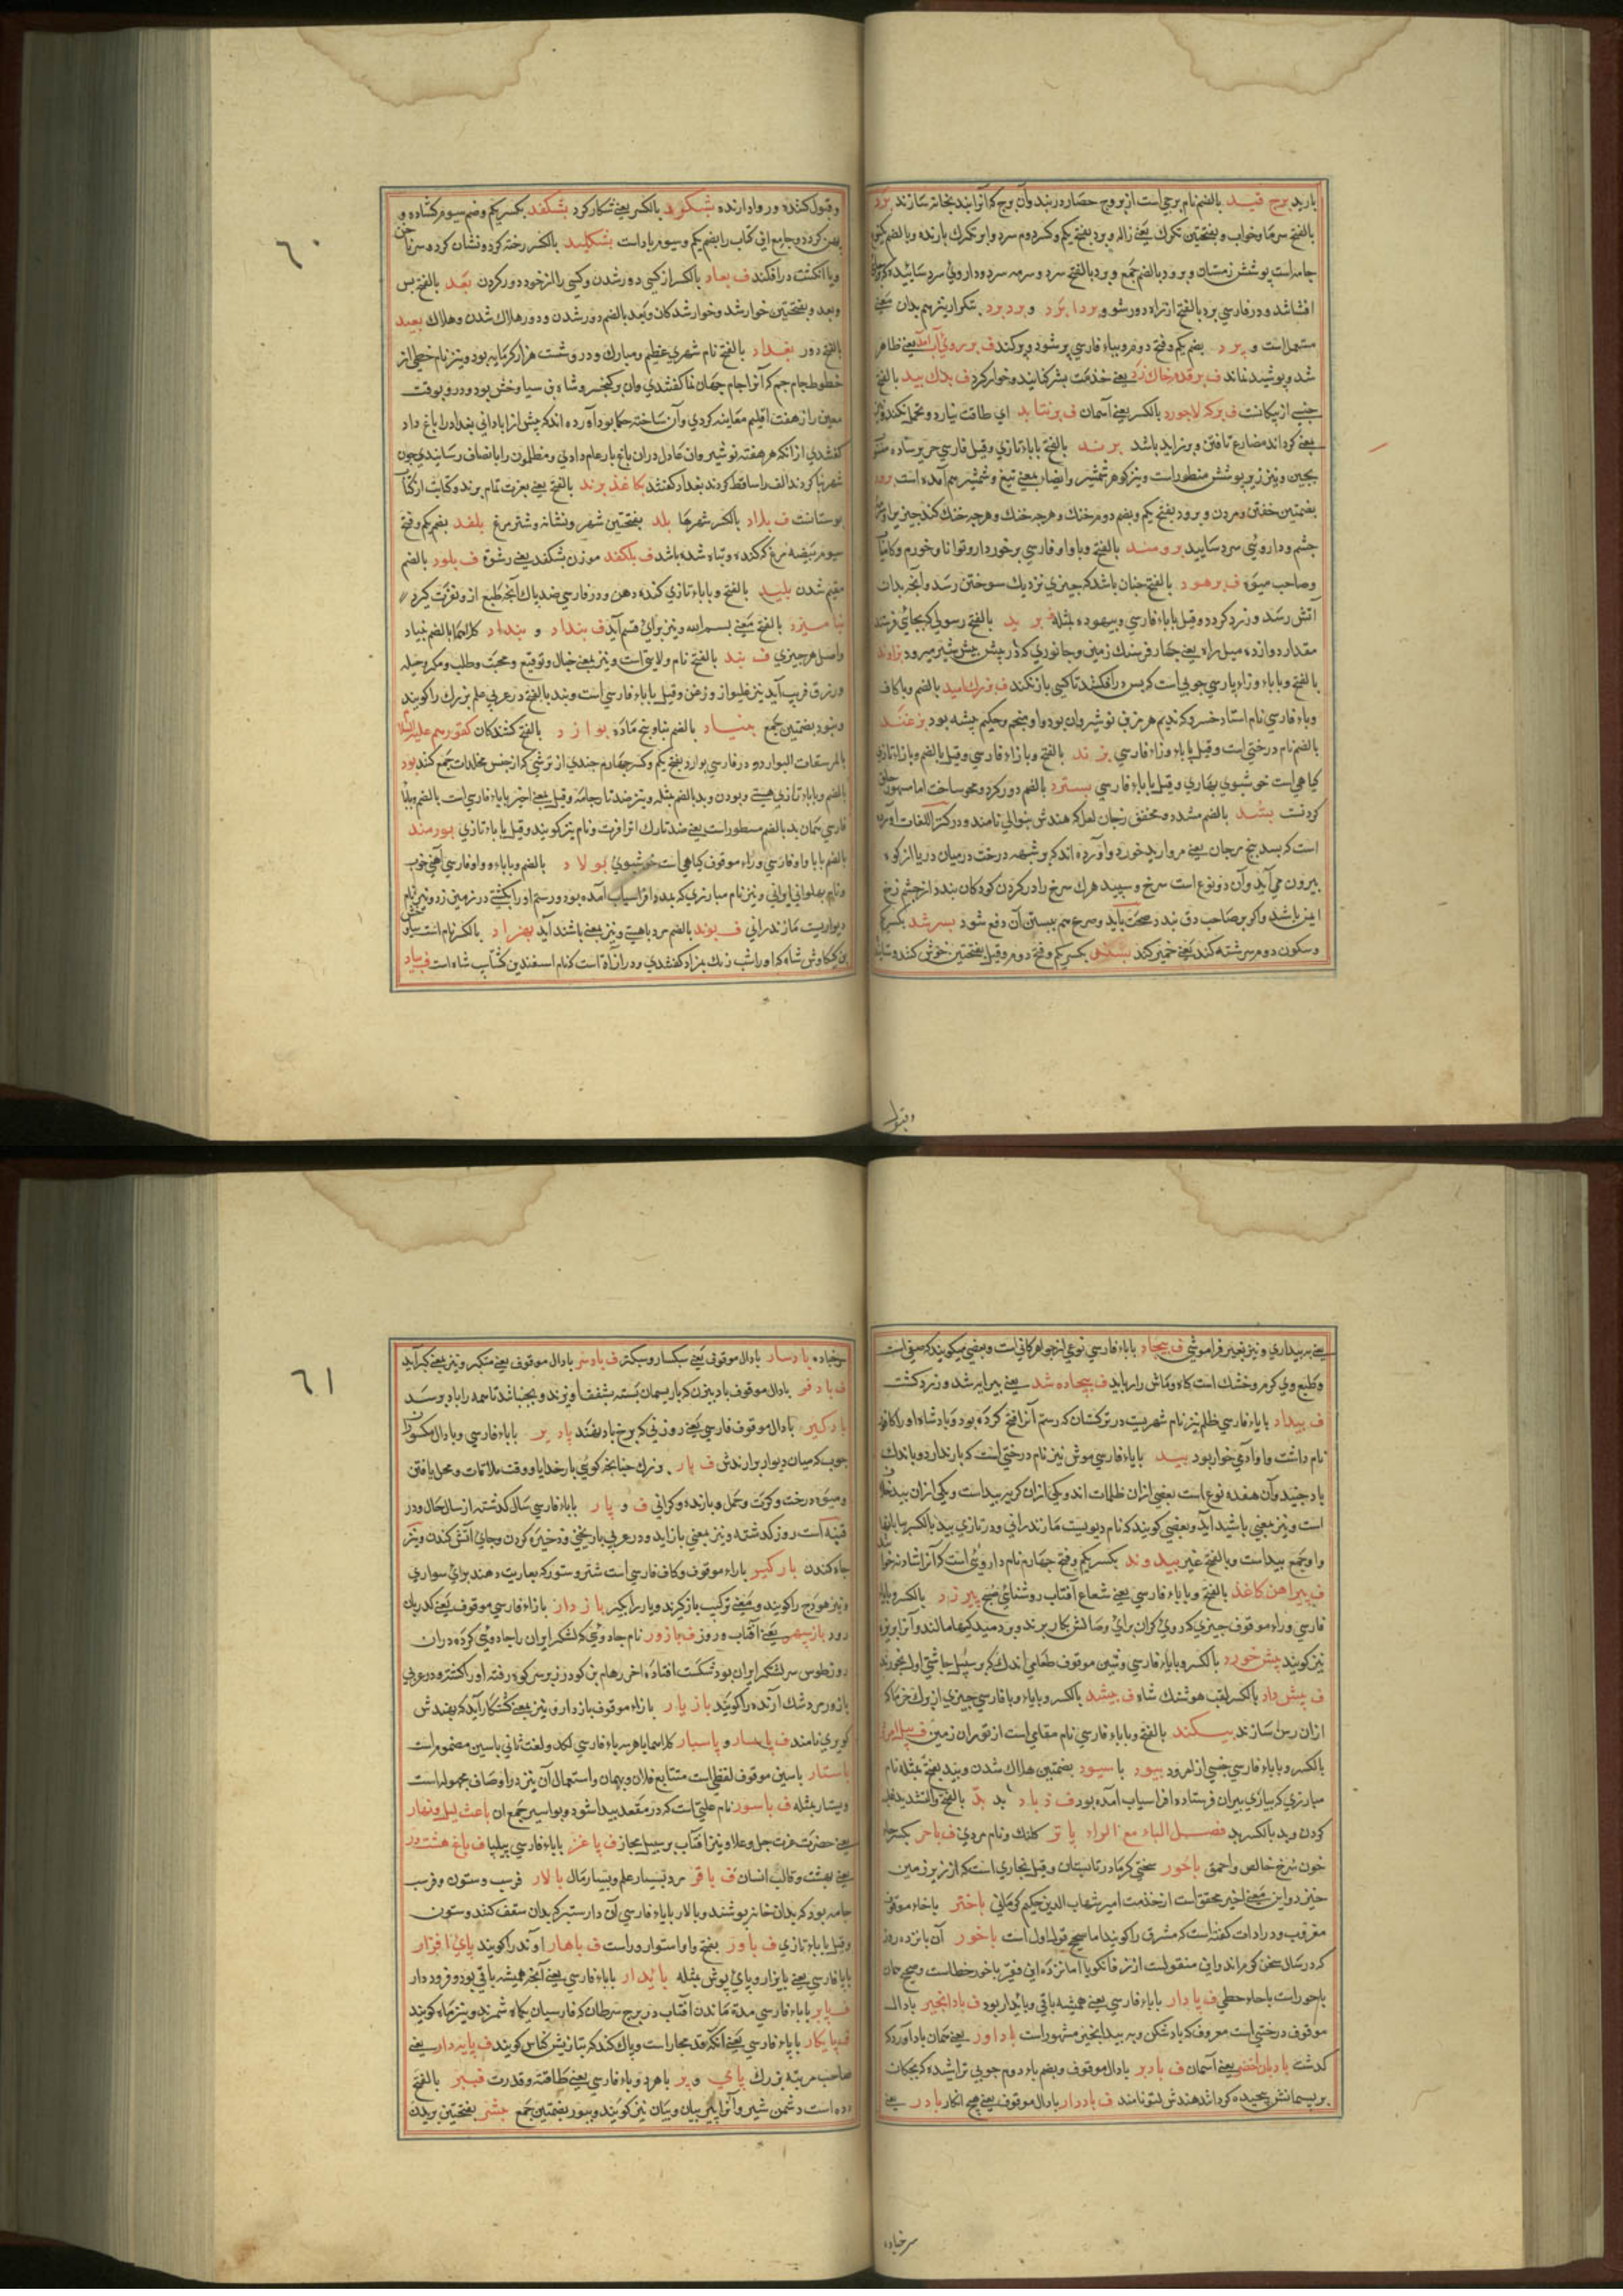 بارید برج قید بالضم نام برجی است از بروج حصار دربند وآن برج که آنرا بند بخانه سازند برد
بالفتح سرما وخواب وبفتحتین تکرک یعنی ژاله وبرد بفتح یکم وکسر دوم سرد وابر تکرک بارنده وبالضم
جامه است پوشش زمستان وبرود بالضم جمع وبرد بالفتح سرد وسرمه سرد وداروی سرد سائیده
افشاند ودر فارسی برد بالفتح از راه دور شو و بردا برد و برد برد بتکرار نیز هم بدان معنی
مستعمل است و برد بضم یکم وفتح دوم وبباء فارسی پر شود وپر کند ف بر روی آب آمد یعنی ظاهر
شد وپوشیده نماند ف بر قدم خاک زدی یعنی خذمت بشر نمایند وخوار کرد ف بدک بید بالفتح
جنسی از پیکانست ف برکه لاجورد بالکسر یعنی آسمان ف برنتابد ای طاقت نیارد وتحمل نکند
یعنی کرداند مضارع تافتن وبرنزاید باشد برند بالفتح باباء تازی وقیل فارسی حریر ساده
بضمتین خفتن ومردن وبرود بفتح یکم وبضم دوم خنک وهرچه خنک وهرچه خنک کند چیزیرا
چشم وداروئی سرد سایید برومند بالفتح وباواو فارسی برخوردار وتوانا وخورم وکامیاب
وصاحب میوه ف برهود بالفتح چنان باشد که چیزی نزدیک سوختن رسد وآنچه بدان
آتش رسد وزرد کردد وقیل باباء فارسی وبیهوده مثله برید بالفتح رسولی که بجائی فرستند
مقدار دوازده میل راه یعنی چهار فرسنک زمین وجانوری که در پیش پیش شیر میرود بزاوند
بالفتح وباباء وزاء پارسی چوبی است که پس در افکنند تا کسی باز نکند ف بزرک امید بالضم وباکاف
وباء فارسی نام استاد خسرو که ندیم هرمز بن نوشیروان بود واو منجم وحکیم پیشه بود بزغند
بالضم نام درختی است وقیل باباء وزاء فارسی بزند بالفتح وبازاء فارسی وقیل بالضم وبازاء تازی
کیاهی است خوشبوی بهاری وقیل باباء فارسی بسترد بالضم دور کرد ومحو ساخت اما سهو
کردنست بسد بالضم مشدد ومخفف مرجان لعل که هندش بنوالی نامند ودر کنز اللغات آورده
است که بسد بیخ مرجان یعنی مروارید خورد وآورده اند که وشبهه درخت درمیان دریا از کوه
بیرون می آید وآن دو نوع است سرخ وسپید هرک سرخ را در کردن کودکان بندد از چشم زخ
ایمن باشد واکر بر صاحب دق بندد صحت یابد وصرع هم ببستن آن دفع شود بسرشد بکسر یکم
وسکون دوم سرشته کند یعنی خمیر کند بسکد بکسر یکم وفتح دوم وقیل بفتحتین خوش کند
وقبول
وقبول کننده وروا دارنده بشکرد بالکسر یعنی شکار کرد بشکفد بکسر یکم وضم سیوم کشاده و
پهن کردد وجامع این کتاب را بضم یکم وسیوم یاد است بشکلید بالکسر رخنه کرد ونشان کرد بسر ناخن
ویا انکشت درافکند ف بعاد بالکسر از کسی دور شدن وکسی را از خود دور کردن بعد بالفتح پس
وبعد وبفتحتین خوار شد وخوار شدکان وبعد بالضم دور شدن ودور هلاک شدن وهلاک بعید
بالفتح دور بغداد بالفتح نام شهری عظیم ومبارک ودرو شست هزار کرمابه بود ونیز نام خطی از
خطوط جام جم که آنرا جام جهان نما کفتندی وان بر کیخسرو شاه بن سیاوخش بود ودرو بوقت
معین راز هفت اقلیم معاینه کردی وآن ساخته حکما بود آورده اند که پیش از ابادانی بغداد را باغ داد
کفتندی از آنکه هر هفته نوشیروان عادل دران باغ بار عام دادی ومظلومان را بانصاف رسانیدی چون
شهر بنا کردند الف را ساقط کردند بغداد کفتند بکاغذ برند بالفتح یعنی بعزت تمام برند وکنایت از کتاب
بوستانست ف بلاد بالکسر شهرها بلد بفتحتین شهر ونشانه وشتر مرغ بلغد بضم یکم وفتح
سیوم بیضه مرغ که کنده وتباه شده باشد ف بلکفد موزن بشکفد یعنی رشوة ف بلود بالضم
مقیم شدن بلید بالفتح وباباء تازی کنده ذهن ودر فارسی ضد پاک آنچه طبع از و نفرت کیرد
بنامیزد بالفتح یعنی بسم الله ونیز برای قسم آید ف بنداد و بنداد کلاهما بالضم بنیاد
واصل هر چیزی ف بند بالفتح نام ولایتی است ونیز بمعنی خیال وتوقیع ومحبت وطلب ومکر وحیله
وزرق فریب آید نیز غلیواز وزغن وقیل باباء فارسی است وبند بالفتح در عربی علم بزرک را کویند
وبنود بضمتین جمع بنیاد بالضم بنا وبیخ ماده بوارد بالفتح کشندکان
المرسقات البوارد ودر فارسی بوارد بفتح یکم وکسر چهارم چندی از ترشی که از جنس مخللات جمع کنند بود
بالضم وباباء تازی هستی وبودن وبد بالضم مثله ونیز ضد تار جامه وقیل بمعنی اخیر باباء فارسی است
بورمند
بالضم باباء واو فارسی وراء موقوف کیاهی است خوشبوی بولاد بالضم وباباء وواو فارسی آهنی خوب
ونام پهلوانی ایرانی ونیز نام مبارزی که بمدد افراسیاب آمده بود ورستم اورا بکشتی در زمین زد ونیز نام
دیواریست مازندرانی ف بوند بالضم مرد باهیبت ونیز بمعنی باشند آید بهزاد بالکسر نام
بن کیکاوس شاه که اورا شب رنک بهزاد کفتندی ودر ازاد است که نام اسفندین کشتاسب شاه است ف بیاد
٦٠
یعنی بر بیداری ونیز بغیر فراموشی ف بیجاد باباء فارسی نوعی از جواهر کانی است وبعضی میکویند که صمغی است
وطبع وی کرم وخشک است کاه وماش را رباید ف بیجاده شد یعنی بیرابر شد وزرد کشت
ف بیداد باباء فارسی ظلم نیز نام شهریست در ترکستان که رستم آنرا فتح کرده بود وپادشاه اورا کافور
نام داشت واو آدمی خوار بود بید باباء فارسی موش نیز نام درختی است که بار ندارد وباندک
باد جنبد وآن هفده نوع است بعضی ازان ظلمات اند ویکی ازان کربه بید است ویکی ازان بید
است ونیز بمعنی باشید آید وبعضی کویند که نام دیویست مازندرانی ودر تازی بید بالکسر
واو جمع بیداست وبالفتح غیر بیدوند بکسر یکم وفتح چهارم نام داروئی است که آنرا شادنه
ف بیراهن کاغذ بالفتح وباباء فارسی یعنی شعاع آفتاب روشنائی صبح بیرزد بالکسر وباباء
فارسی وراء موقوف چیزی که روی کران برای وصالش بکار برند
نیز کویند پیش خورد بالکسر وباباء فارسی وشین موقوف طعامی اندک که بر سبیل چاشنی اول بخورند
ف پیش داد بالکسر لقب هوشنک شاه ف بیشد بالکسر وباباء وپا فارسی چیزی از برک خرما که
ازان رسن سازند بیکند بالفتح وباباء فارسی نام مقامی است از توران زمین
بالکسر وباباء فارسی جنسی از امرود بیود با سیود بضمتین هلاک شدن وبید بفتح مثله نام
مبارزی که بیاری پیران فرستاده افراسیاب آمده بود بد بالفتح والتشدید
کردن وبد بالکسر بد فصل الباء مع الراء باتر کلنک ونام مردی ف باحر بکسر
خون سرخ خالص واحمق باحور سختی کرما در تابستان وقیل بخاری است که از زیر زمین
خیزد واین معنی اخیر محقق است از خدمت امیر شهاب الدین حکیم کرمانی باختر باخاء موقوف
مغرب ودر ادات کفته است که مشرق را کویند اما صحیح قول اول است باخور آن پانزده روز
باحور است باحاء حطی ف پادار باباء فارسی یعنی همیشه باقی وپایدار بود ف بادانجیر بادال
موقوف درختی است معروف که باد شکن وبه بید انجیر مشهور است باداور یعنی همان باد آورد که
کذشت بادبان اخضر یعنی آسمان ف بادبر بادال موقوف وبضم باء دوم چوبی تراشیده که بچکان
بریسمانش پیچیده کردانند هندش لتو نامند ف بادوار بادال موقوف یعنی هیچ انکار بادر یعنی
سرخباده
سرخباده بادسار بادال موقوف یعنی سبکسار وسبکسر ف بادسر بادال موقوف یعنی متکبر ونیز بمعنی کبر آید
ف بادفر بادال موقوف باد بیزن که با ریسمان بسته بسقف آویزند وبجنبانند تا همه را باد برسد
بادکیر بادال موقوف فارسی یعنی روزنی که بر رخ باد نهند پادیر باباء فارسی وبادال مکسور
چوب که میان دیوار برارندش ف بار وبزرک چنانچه کویی بار خدایا ووقت ملاقات ومحل یافتن
ومیوه درخت وکرت وحمل وبارنده وکرانی ف و پار باباء فارسی سال کذشته از سال حال ودر
قنیه است روز کذشته ونیز بمعنی بازاید ودر عربی باریخی وذخیره کردن وجای آتش کندن ونیز
چاه کندن بارکیر باراء موقوف وکاف فارسی است شتر وستور که بعاریت دهند برای سواری
ونیز هودج را کویند ومعنی ترکیب باز کرند وبار را بکیر بازدار بازاء فارسی موقوف یعنی کدر بان
رود بازسپهر یعنی آفتاب وروز ف بازور نام جادوئی که لشکر ایران را جادوئی کرده دران
روز طوس سر لشکر ایران بود شکست افتاده اخر رهام بن کودرز برسر کوه رفته اورا کشته ودر عربی
بازیار بازاء موقوف بازدار ونیز بمعنی کشتکار آید که بهندش
کوبری نامند ف پاسار و پاسبار کلاهما باهر سه باء فارسی لکد ولغت ثانی باسین مضموم است
باستار باسین موقوف لفظی است متتابع فلان وبهمان واستعمال آن نیز در اوصاف مجهوله است
وبیستار مثله ف باسور نام علتی است که در مقعد پیدا شود وبواسیر جمع ان باعث لیل ونهار
یعنی حضرت عزت جل وعلا ونیز آفتاب بر سبیل مجاز ف پاغر باباء فارسی پیلپا ف باغ هشت در
یعنی بهشت وقالب انسان ف باقر مرد بسیار علم وبسیار مال بالار فرسب وستون وفرسب
جامه بود که بدان خانه پوشند وبالار باباء فارسی آن دار ستبر که بدان سقف کنند وستون
وقیل باباء تازی ف باور بفتح واو استوار وراست ف باهار اوند را کویند پای افزار
باپا فارسی یعنی پایزار وپای پوش مثله پایدار باباء فارسی یعنی آنچه همیشه باقی بود وفرود دار
ف پایر باباء فارسی مدة ماندن آفتاب در برج سرطان که فارسیان یکماه شمرند ونیز تیرماه کویند
ف پایکار باپاء فارسی یعنی آنکه قدمجا راست وپاک کند که بتازیش کناس کویند ف پایه دار یعنی
صاحب مرتبه بزرک پای و پر باهر دو باء فارسی یعنی طاقة وقدرت ف ببر بالفتح
دده است دشمن شیر وآنرا ببر بیان وبیان نیز کویند وببور بضمتین جمع بشر بفتحتین بریدن
٦١